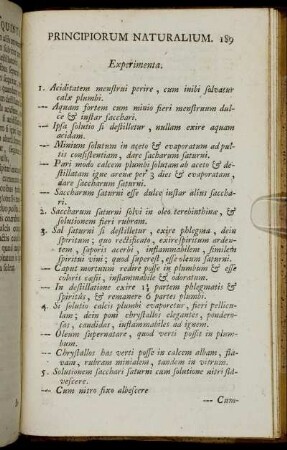 PRINCIPIORUM NATURALIUM. 189
Experimenta.
1. Aciditatem menstrui perire, cum inibi solvatur
calx plumbi.
— Aquam fortem cum minio fieri menstruum dul-
ce & instar sacchari.
— Ipsa solutio si destilletur, nullam exire aquam
acidam.
— Minium solutum in aceto & evaporatum ad pul-
tis consistentiam, dare sacharum saturni.
— Pari modo calcem plumbi solutam ab aceto & de-
stillatam igne arenæ per 3 dies & evaporatam,
dare saccharum saturni.
— Saccharum saturni esse dulce instar alius saccha-
ri.
2. Saccharum saturni solvi in oleo terebinthinæ, &
solutionem fieri rubram.
3. Sal saturni si destilletur, exire phlegma, dein
spiritum; quo rectificato, exire spiritum arden-
tem, saporis acerbi, inflammabilem, similem
spiritui vini; quod superest, esse oleum saturni.
— Caput mortuum redire posse in plumbum & esse
coloris cæsii, inflammabile & odoratum.
— In destillatione exire 1½ partem phlegmatis &
spiritus, & remanere 6 partes plumbi.
4. Si solutio calcis plumbi evaporetur, fieri pellicu-
lam; dein poni chrystallos elegantes, pondero-
sos, candidos, inflammabiles ad ignem.
— Oleum supernatare, quod verti possit in plum-
bum.
— Chrystallos hos verti posse in calcem albam, fla-
vam, rubram minialem, tandem in vitrum.
5. Solutionem sacchari saturni cum solutione nitri fla-
vescere.
— Cum nitro fixo albescere
— Cum-